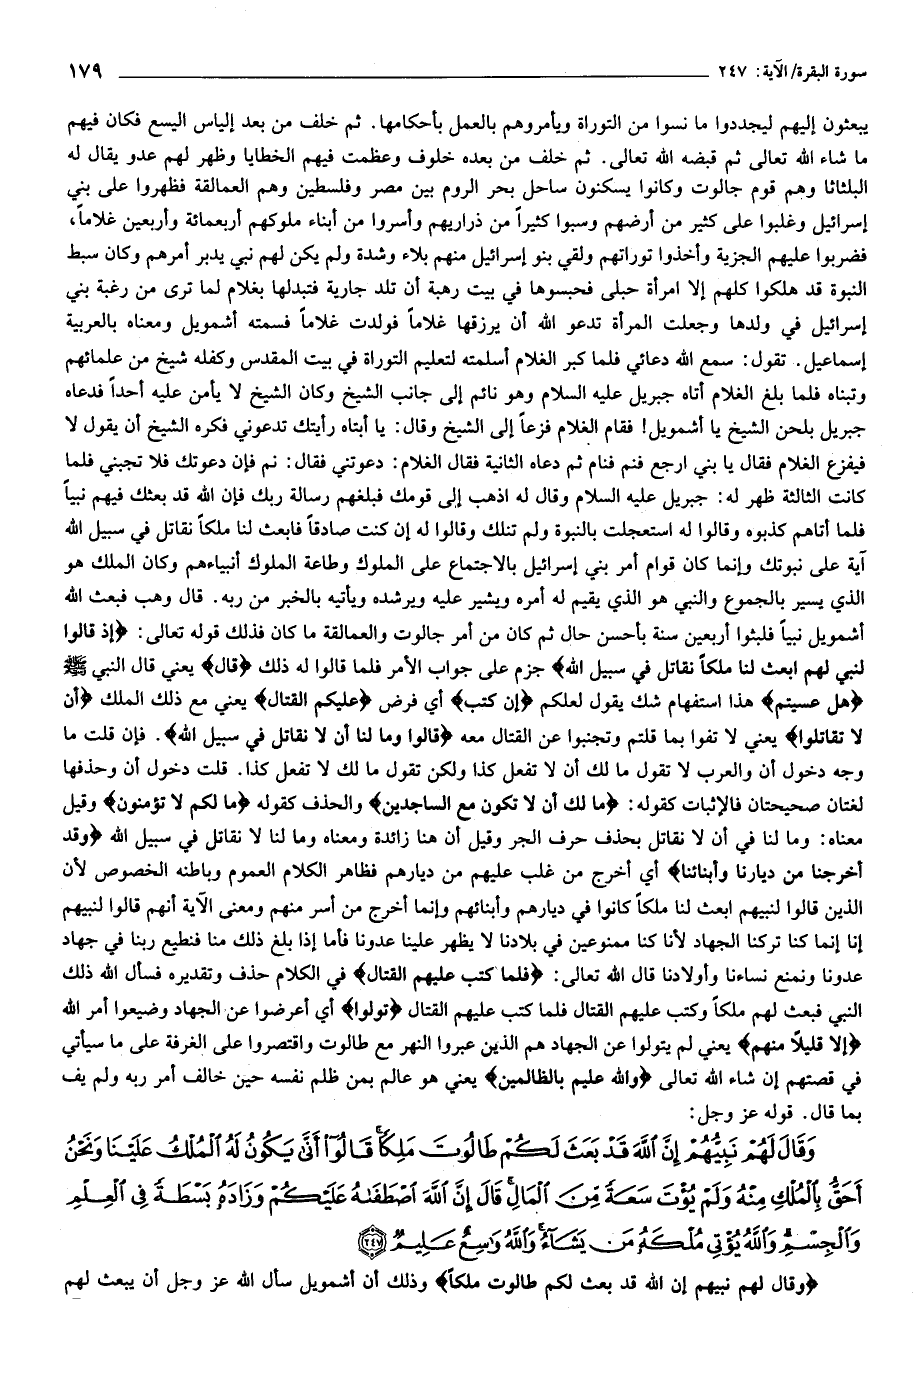 سورة البقرة/ الآية: ٢٤٧ ١٧٩
يبعثون إليهم ليجددوا ما نسوا من التوراة ويأمروهم بالعمل بأحكامها. ثم خلف من بعد إلياس اليسع فكان فيهم
ما شاء الله تعالى ثم قبضه الله تعالى. ثم خلف من بعده خلوف وعظمت فيهم الخطايا وظهر لهم عدو يقال له
البلثاثا وهم قوم جالوت وكانوا يسكنون ساحل بحر الروم بين مصر وفلسطين وهم العمالقة فظهروا على بني
إسرائيل وغلبوا على كثير من أرضهم وسبوا كثيراً من ذراريهم وأسروا من أبناء ملوكهم أربعمائة وأربعين غلاماً،
فضربوا عليهم الجزية وأخذوا توراتهم ولقي بنو إسرائيل منهم بلاء وشدة ولم يكن لهم نبي يدبر أمرهم وكان سبط
النبوة قد هلكوا كلهم إلا امرأة حبلى فحبسوها في بيت رهبة أن تلد جارية فتبدلها بغلام لما ترى من رغبة بني
إسرائيل في ولدها وجعلت المرأة تدعو الله أن يرزقها غلاماً فولدت غلاماً فسمته أشمويل ومعناه بالعربية
إسماعيل. تقول: سمع الله دعائي فلما كبر الغلام أسلمته لتعليم التوراة في بيت المقدس وكفله شيخ من علمائهم
وتبناه فلما بلغ الغلام أتاه جبريل عليه السلام وهو نائم إلى جانب الشيخ وكان الشيخ لا يأمن عليه أحداً فدعاه
جبريل بلحن الشيخ يا أشمويل! فقام الغلام فزعاً إلى الشيخ وقال: يا أبتاه رأيتك تدعوني فكره الشيخ أن يقول لا
فيفزع الغلام فقال يا بني ارجع فنم فنام ثم دعاه الثانية فقال الغلام: دعوتني فقال: نم فإن دعوتك فلا تجبني فلما
كانت الثالثة ظهر له: جبريل عليه السلام وقال له اذهب إلى قومك فبلغهم رسالة ربك فإن الله قد بعثك فيهم نبياً
فلما أتاهم كذبوه وقالوا له استعجلت بالنبوة ولم تنلك وقالوا له إن كنت صادقاً فابعث لنا ملكاً نقاتل في سبيل الله
آية على نبوتك وإنما كان قوام أمر بني إسرائيل بالاجتماع على الملوك وطاعة الملوك أنبياءهم وكان الملك هو
الذي يسير بالجموع والنبي هو الذي يقيم له أمره ويشير عليه ويرشده ويأتيه بالخبر من ربه. قال وهب فبعث الله
أشمويل نبياً فلبثوا أربعين سنة بأحسن حال ثم كان من أمر جالوت والعمالقة ما كان فذلك قوله تعالى: ﴿إذ قالوا
لنبي لهم ابعث لنا ملكاً نقاتل في سبيل الله﴾ جزم على جواب الأمر فلما قالوا له ذلك ﴿قال﴾ يعني قال النبي ﷺ
﴿هل عسيتم﴾ هذا استفهام شك يقول لعلكم ﴿إن كتب﴾ أي فرض ﴿عليكم القتال﴾ يعني مع ذلك الملك ﴿أن
لا تقاتلوا﴾ يعني لا تفوا بما قلتم وتجنبوا عن القتال معه ﴿قالوا وما لنا أن لا نقاتل في سبيل الله﴾. فإن قلت ما
وجه دخول أن والعرب لا تقول ما لك أن لا تفعل كذا ولكن تقول ما لك لا تفعل كذا. قلت دخول أن وحذفها
لغتان صحيحتان فالإثبات كقوله: ﴿ما لك أن لا تكون مع الساجدين﴾ والحذف كقوله ﴿ما لكم لا تؤمنون﴾ وقيل
معناه: وما لنا في أن لا نقاتل بحذف حرف الجر وقيل أن هنا زائدة ومعناه وما لنا لا نقاتل في سبيل الله ﴿وقد
أخرجنا من ديارنا وأبنائنا﴾ أي أخرج من غلب عليهم من ديارهم فظاهر الكلام العموم وباطنه الخصوص لأن
الذين قالوا لنبيهم ابعث لنا ملكاً كانوا في ديارهم وأبنائهم وإنما أخرج من أسر منهم ومعنى الآية أنهم قالوا لنبيهم
إنا إنما كنا تركنا الجهاد لأنا كنا ممنوعين في بلادنا لا يظهر علينا عدونا فأما إذا بلغ ذلك منا فنطيع ربنا في جهاد
عدونا ونمنع نساءنا وأولادنا قال الله تعالى: ﴿فلما كتب عليهم القتال﴾ في الكلام حذف وتقديره فسأل الله ذلك
النبي فبعث لهم ملكاً وكتب عليهم القتال فلما كتب عليهم القتال ﴿تولوا﴾ أي أعرضوا عن الجهاد وضيعوا أمر الله
﴿إلا قليلاً منهم﴾ يعني لم يتولوا عن الجهاد هم الذين عبروا النهر مع طالوت واقتصروا على الغرفة على ما سيأتي
في قصتهم إن شاء الله تعالى ﴿والله عليم بالظالمين﴾ يعني هو عالم بمن ظلم نفسه حين خالف أمر ربه ولم يف
بما قال. قوله عز وجل:
وَقَالَ لَهُمْ نَبِيُّهُمْ إِنَّ اللَّهَ قَدْ بَعَثَ لَكُمْ طَالُوتَ مَلِكًا قَالُوا أَنَّى يَكُونُ لَهُ الْمُلْكُ عَلَيْنَا وَنَحْنُ
أَحَقُّ بِالْمُلْكِ مِنْهُ وَلَمْ يُؤْتَ سَعَةً مِنَ الْمَالِ قَالَ إِنَّ اللَّهَ اصْطَفَاهُ عَلَيْكُمْ وَزَادَهُ بَسْطَةً فِي الْعِلْمِ
وَالْجِسْمِ وَاللَّهُ يُؤْتِي مُلْكَهُ مَنْ يَشَاءُ وَاللَّهُ وَاسِعٌ عَلِيمٌ ٢٤٧
﴿وقال لهم نبيهم إن الله قد بعث لكم طالوت ملكاً﴾ وذلك أن أشمويل سأل الله عز وجل أن يبعث لهم